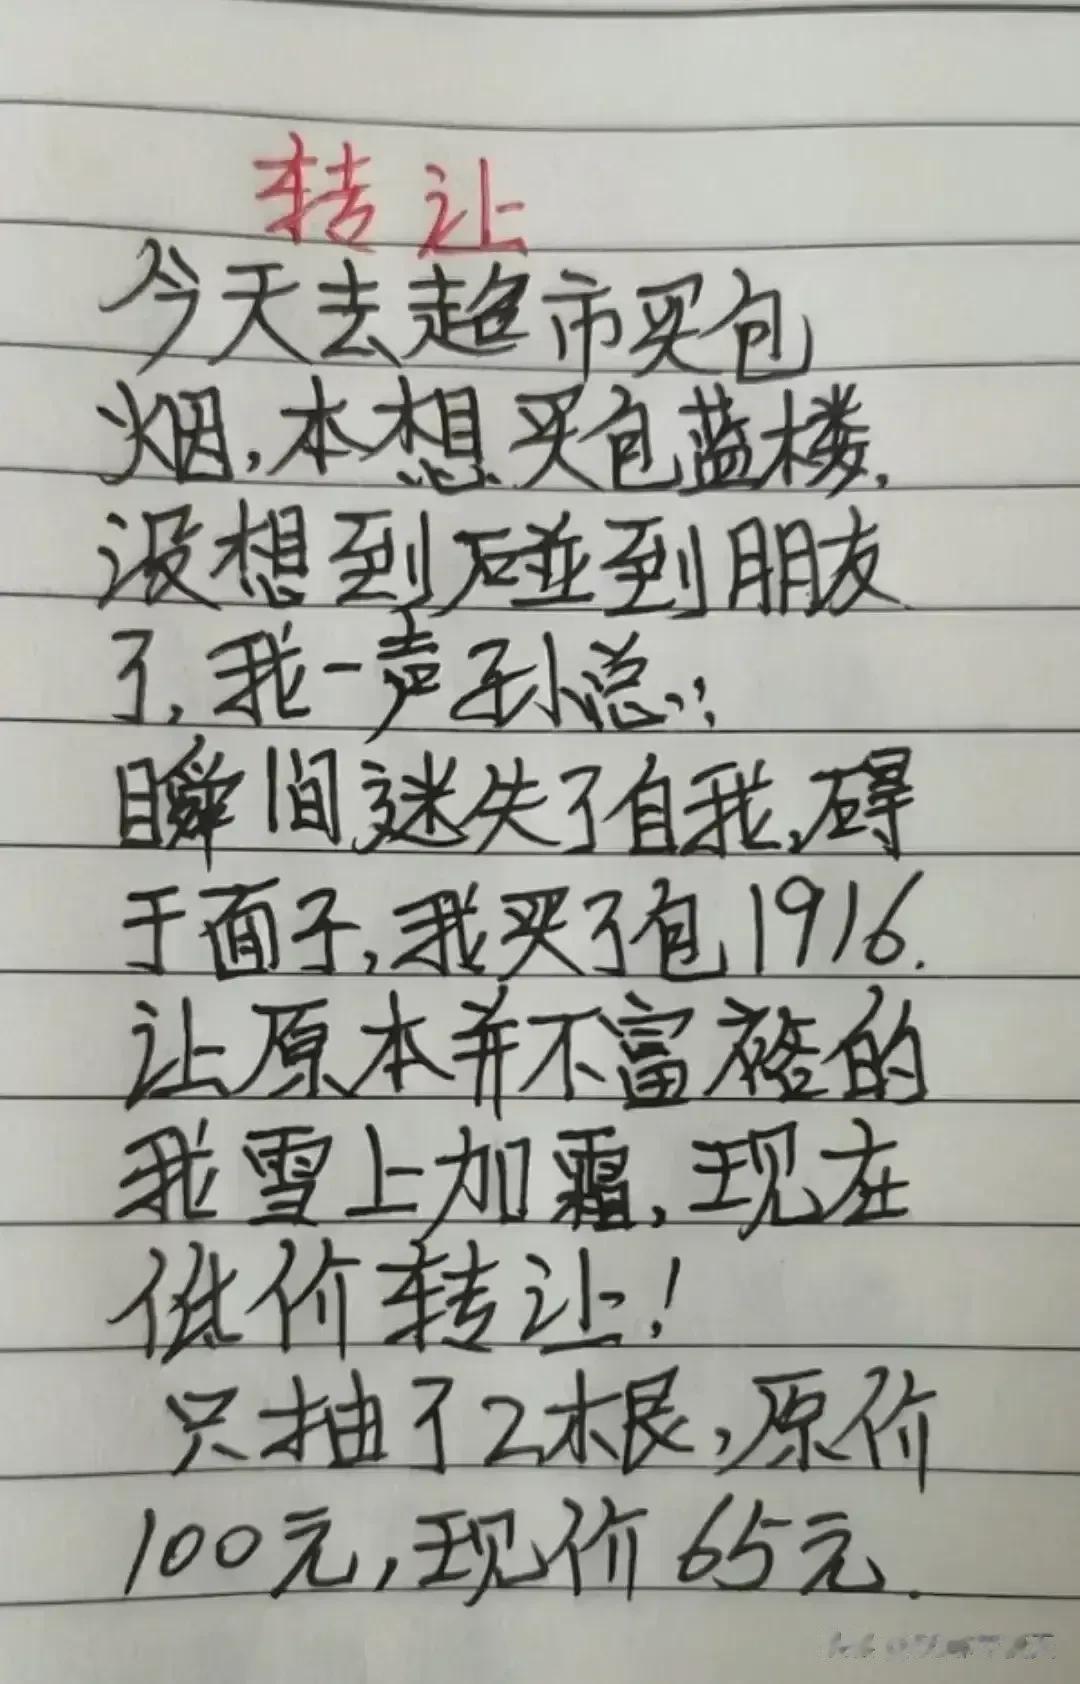 转让
今天去超市买包
烟,本想买包蓝楼,
没想到碰到朋友
了,我一声孙总;
瞬间迷失了自我,碍
于面子,我买了包1916.
让原本并不富裕的
我雪上加霜,现在
低价转让!
只抽了2根,原价
100元,现价65元.